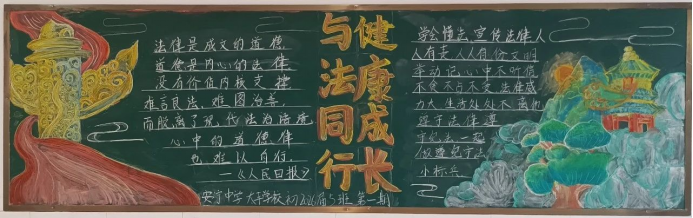 法律是成文的道德,
道德是内心的法律
没有价值内核支撑
难言良法、难图治善,
而脱离了现代法治语境
心中的道德律
也难以自行。
——《人民日报》
与法同行
健康成长
安宁中学太平学校初2026届5班 第一期
学会懂法,宣传法律人
人有责 人人有份 文明
牢记心中不时偿
不贪不占不变 法律威
力大 生活处处不离他
遵纪守法
小标兵